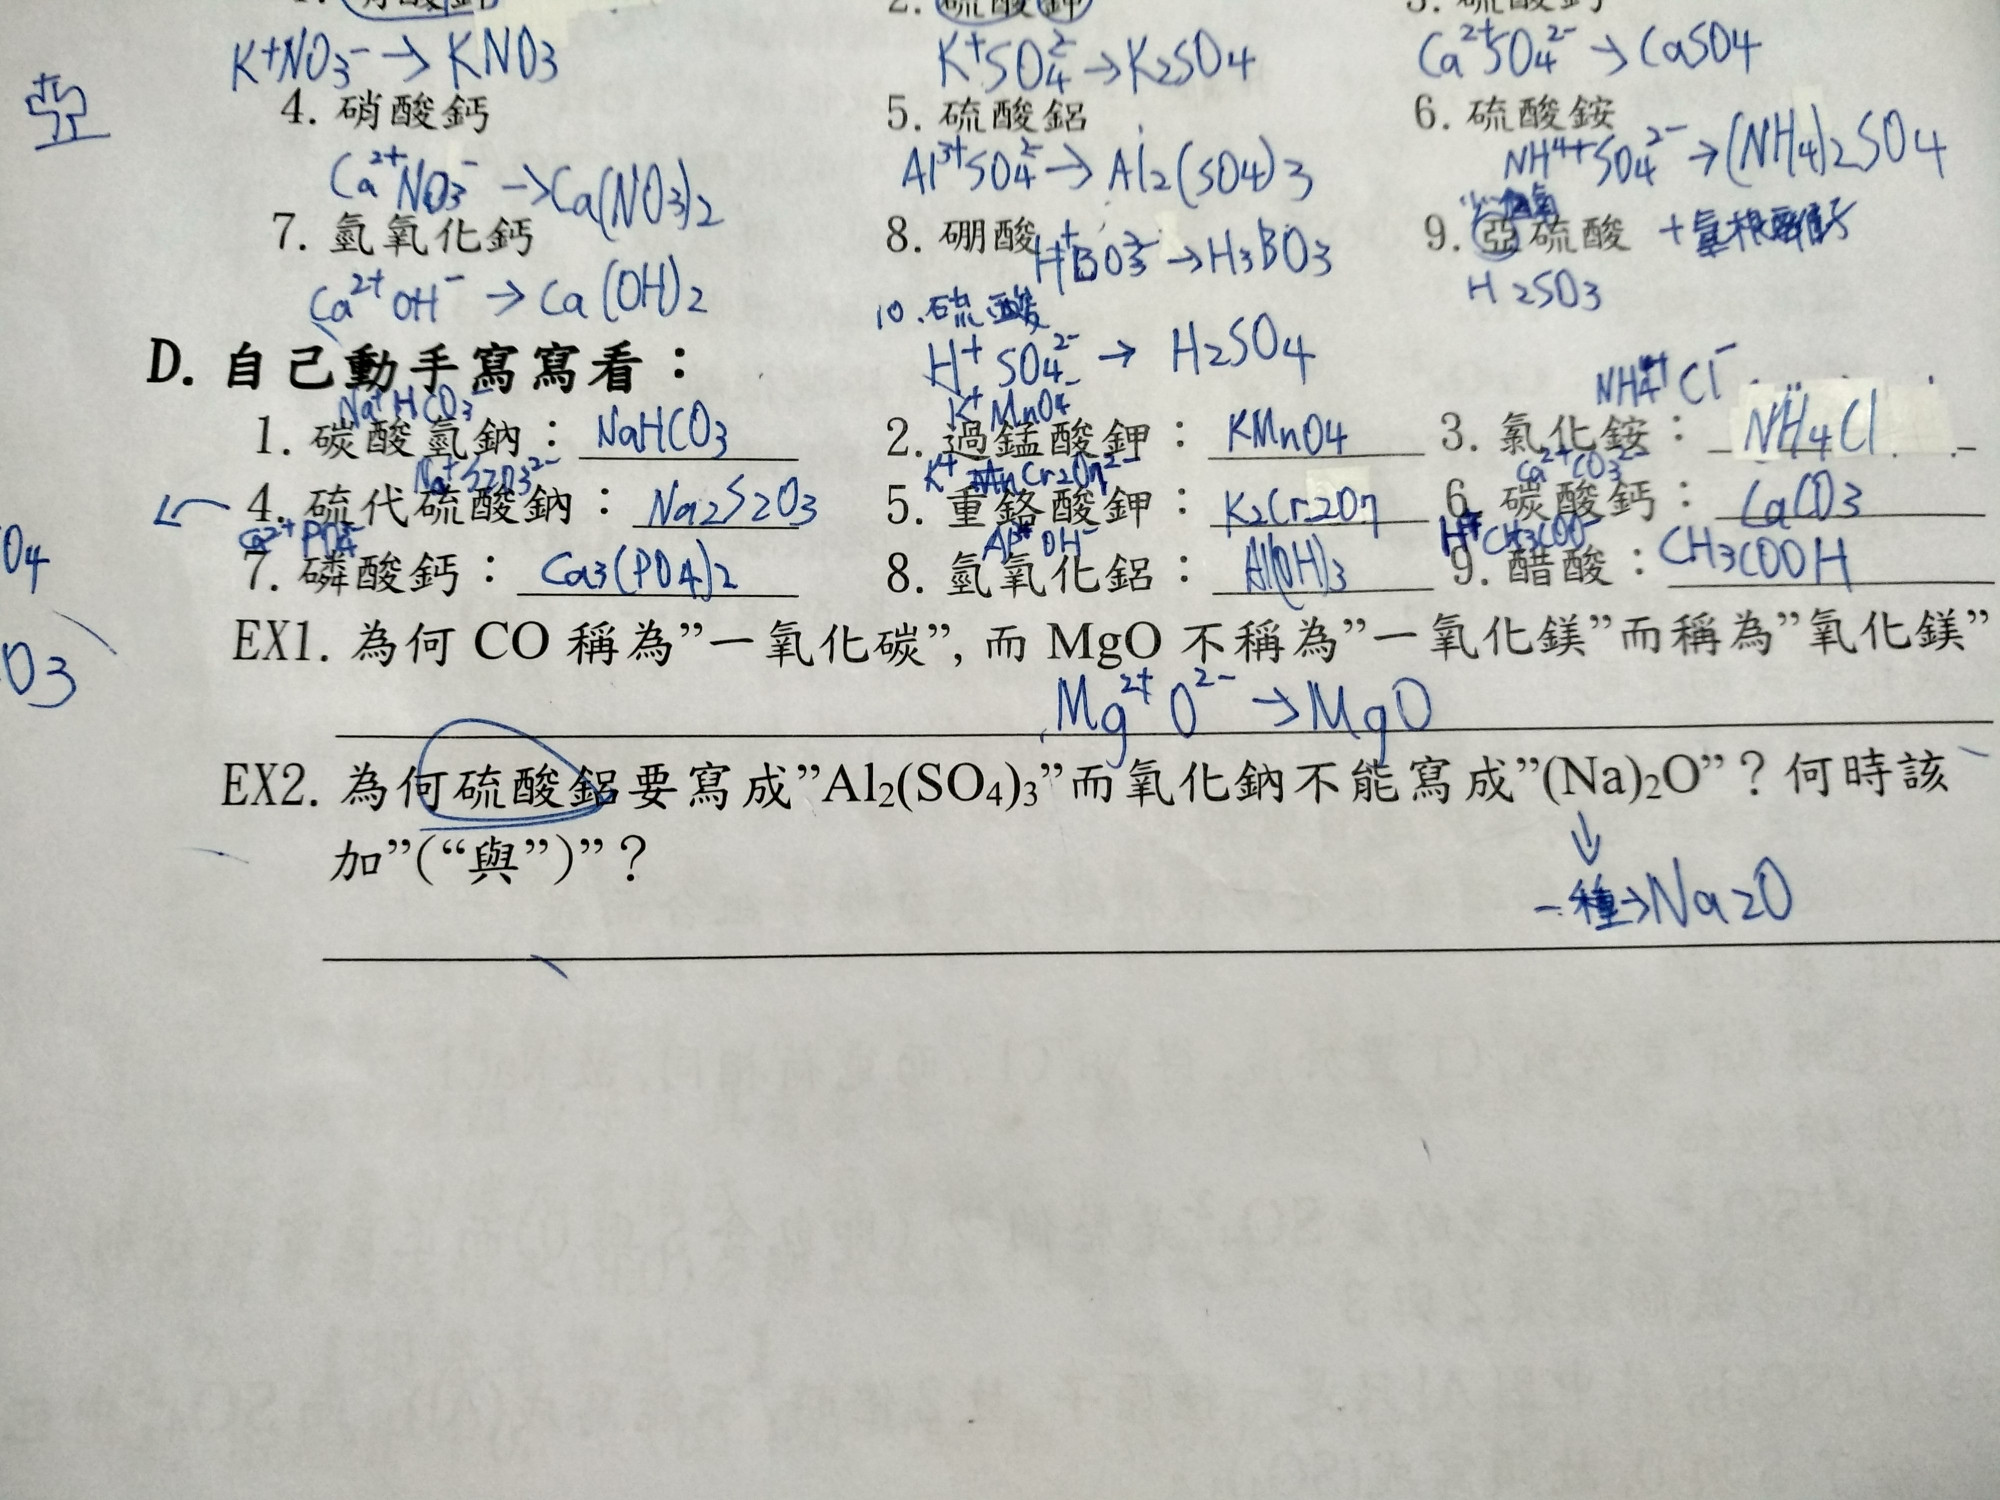 K⁺NO₃⁻ → KNO₃
K⁺SO₄²⁻ → K₂SO₄
Ca²⁺SO₄²⁻ → CaSO₄
亞
4. 硝酸鈣
5. 硫酸鋁
6. 硫酸銨
Ca²⁺NO₃⁻ → Ca(NO₃)₂
Al³⁺SO₄²⁻ → Al₂(SO₄)₃
NH⁴⁺SO₄²⁻ → (NH₄)₂SO₄
7. 氫氧化鈣
8. 硼酸
9. 亞硫酸
Ca²⁺OH⁻ → Ca(OH)₂
H⁺BO₃³⁻ → H₃BO₃
H₂SO₃
10. 硫酸
H⁺ SO₄²⁻ → H₂SO₄
D. 自己動手寫寫看：
Na⁺HCO₃⁻
K⁺MnO₄⁻
NH₄⁺Cl⁻
1. 碳酸氫鈉： NaHCO₃
2. 過錳酸鉀： KMnO₄
3. 氯化銨： NH₄Cl
Na⁺S₂O₃²⁻
Ca²⁺CO₃²⁻
4. 硫代硫酸鈉： Na₂S₂O₃
5. 重鉻酸鉀： K₂Cr₂O₇
6. 碳酸鈣： CaCO₃
Al³⁺OH⁻
H⁺CH₃COO⁻
7. 磷酸鈣： Ca₃(PO₄)₂
8. 氫氧化鋁： Al(OH)₃
9. 醋酸： CH₃COOH
O₄
O₃
EX1. 為何 CO 稱為”一氧化碳”, 而 MgO 不稱為”一氧化鎂”而稱為”氧化鎂”
Mg²⁺O²⁻ → MgO
EX2. 為何硫酸鋁要寫成”Al₂(SO₄)₃”而氧化鈉不能寫成”(Na)₂O”？何時該
加”(“與”)”？
一種→Na₂O